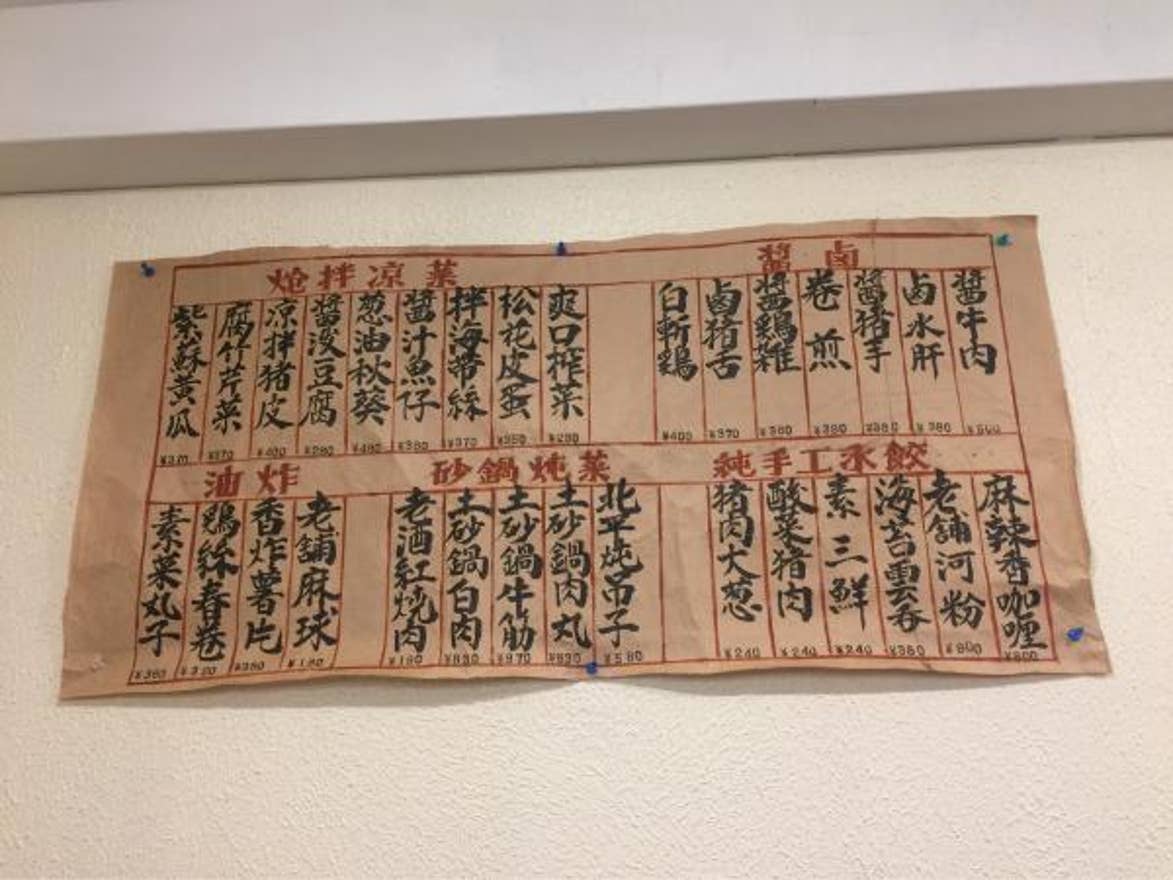 醬 鹵
醬牛肉 ¥500
鹵水肝 ¥380
醬猪手 ¥380
卷煎 ¥380
醬鷄雑 ¥380
鹵猪舌 ¥370
白斬鷄 ¥400
炝拌凉菜
爽口榨菜 ¥280
松花皮蛋 ¥350
拌海带絲 ¥370
醬汁魚仔 ¥380
葱油秋葵 ¥480
醬没豆腐 ¥280
凉拌猪皮 ¥400
腐竹芹菜 ¥370
紫蘇黃瓜 ¥370
純手工水餃
麻辣香咖喱 ¥800
老舗河粉 ¥800
海苔雲吞 ¥380
素三鮮 ¥240
酸菜猪肉 ¥240
猪肉大葱 ¥240
砂鍋炖菜
北平炖吊子 ¥580
土砂鍋肉丸 ¥830
土砂鍋牛筋 ¥970
土砂鍋白肉 ¥830
老酒紅燒肉 ¥180
油炸
老舗麻球 ¥180
香炸薯片 ¥380
鷄絲春卷 ¥380
素菜丸子 ¥380